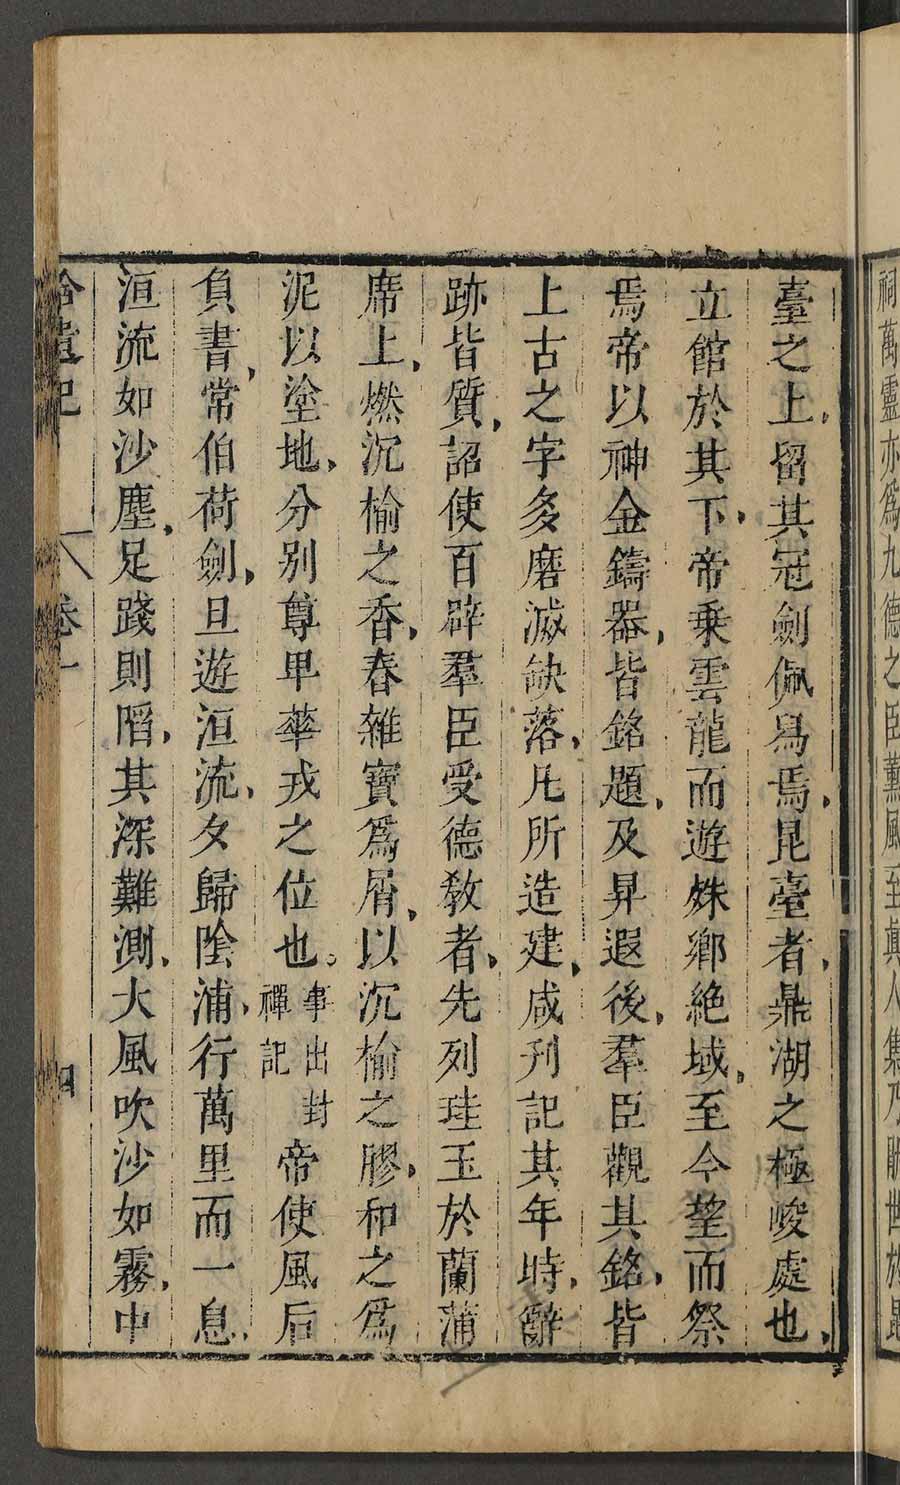 祠萬靈亦爲九德之臣薰風至真人集乃厭世於
臺之上留其冠劍佩舄焉昆臺者鼎湖之極峻處也
立館於其下帝乗雲龍而遊殊鄉絶域至今望而祭
焉帝以神金鑄器皆銘題及昇遐後羣臣觀其銘皆
上古之字多磨滅缺落凡所造建咸刊記其年時辭
跡皆質詔使百辟羣臣受德敎者先列珪玉於蘭蒲
席上燃沉榆之香舂雜寶爲屑以沉榆之膠和之爲
泥以塗地分别尊卑華戎之位也事出封禪記帝使風后
負書常伯荷劍旦遊洹流夕歸陰浦行萬里而一息
洹流如沙塵足踐則陷其深難測大風吹沙如霧中
拾遺記 卷一 四